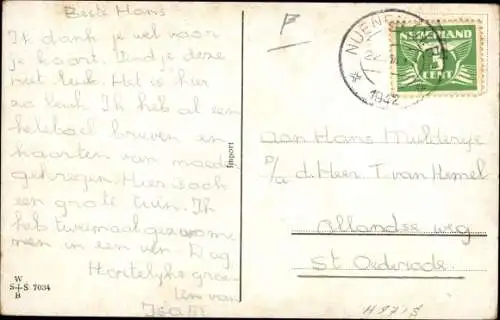 Beste Hans
Ik dank je wel voor
je kaart. Vind je deze
niet leuk. Het is hier
zo leuk. Ik heb al een
heleboel brieven en
kaarten van moeder
gekregen. Hier is ook
een grote tuin. Ik
heb tweemaal gezwomme
men in een ven. Dag
Hartelijke groe
ten van
P
NUENEN
1942
NEDERLAND
CENT
Aan Hans
p/a d. Heer T. van Hemel
Ollandse weg
St Oederode
Import
W
S+S 7034
B